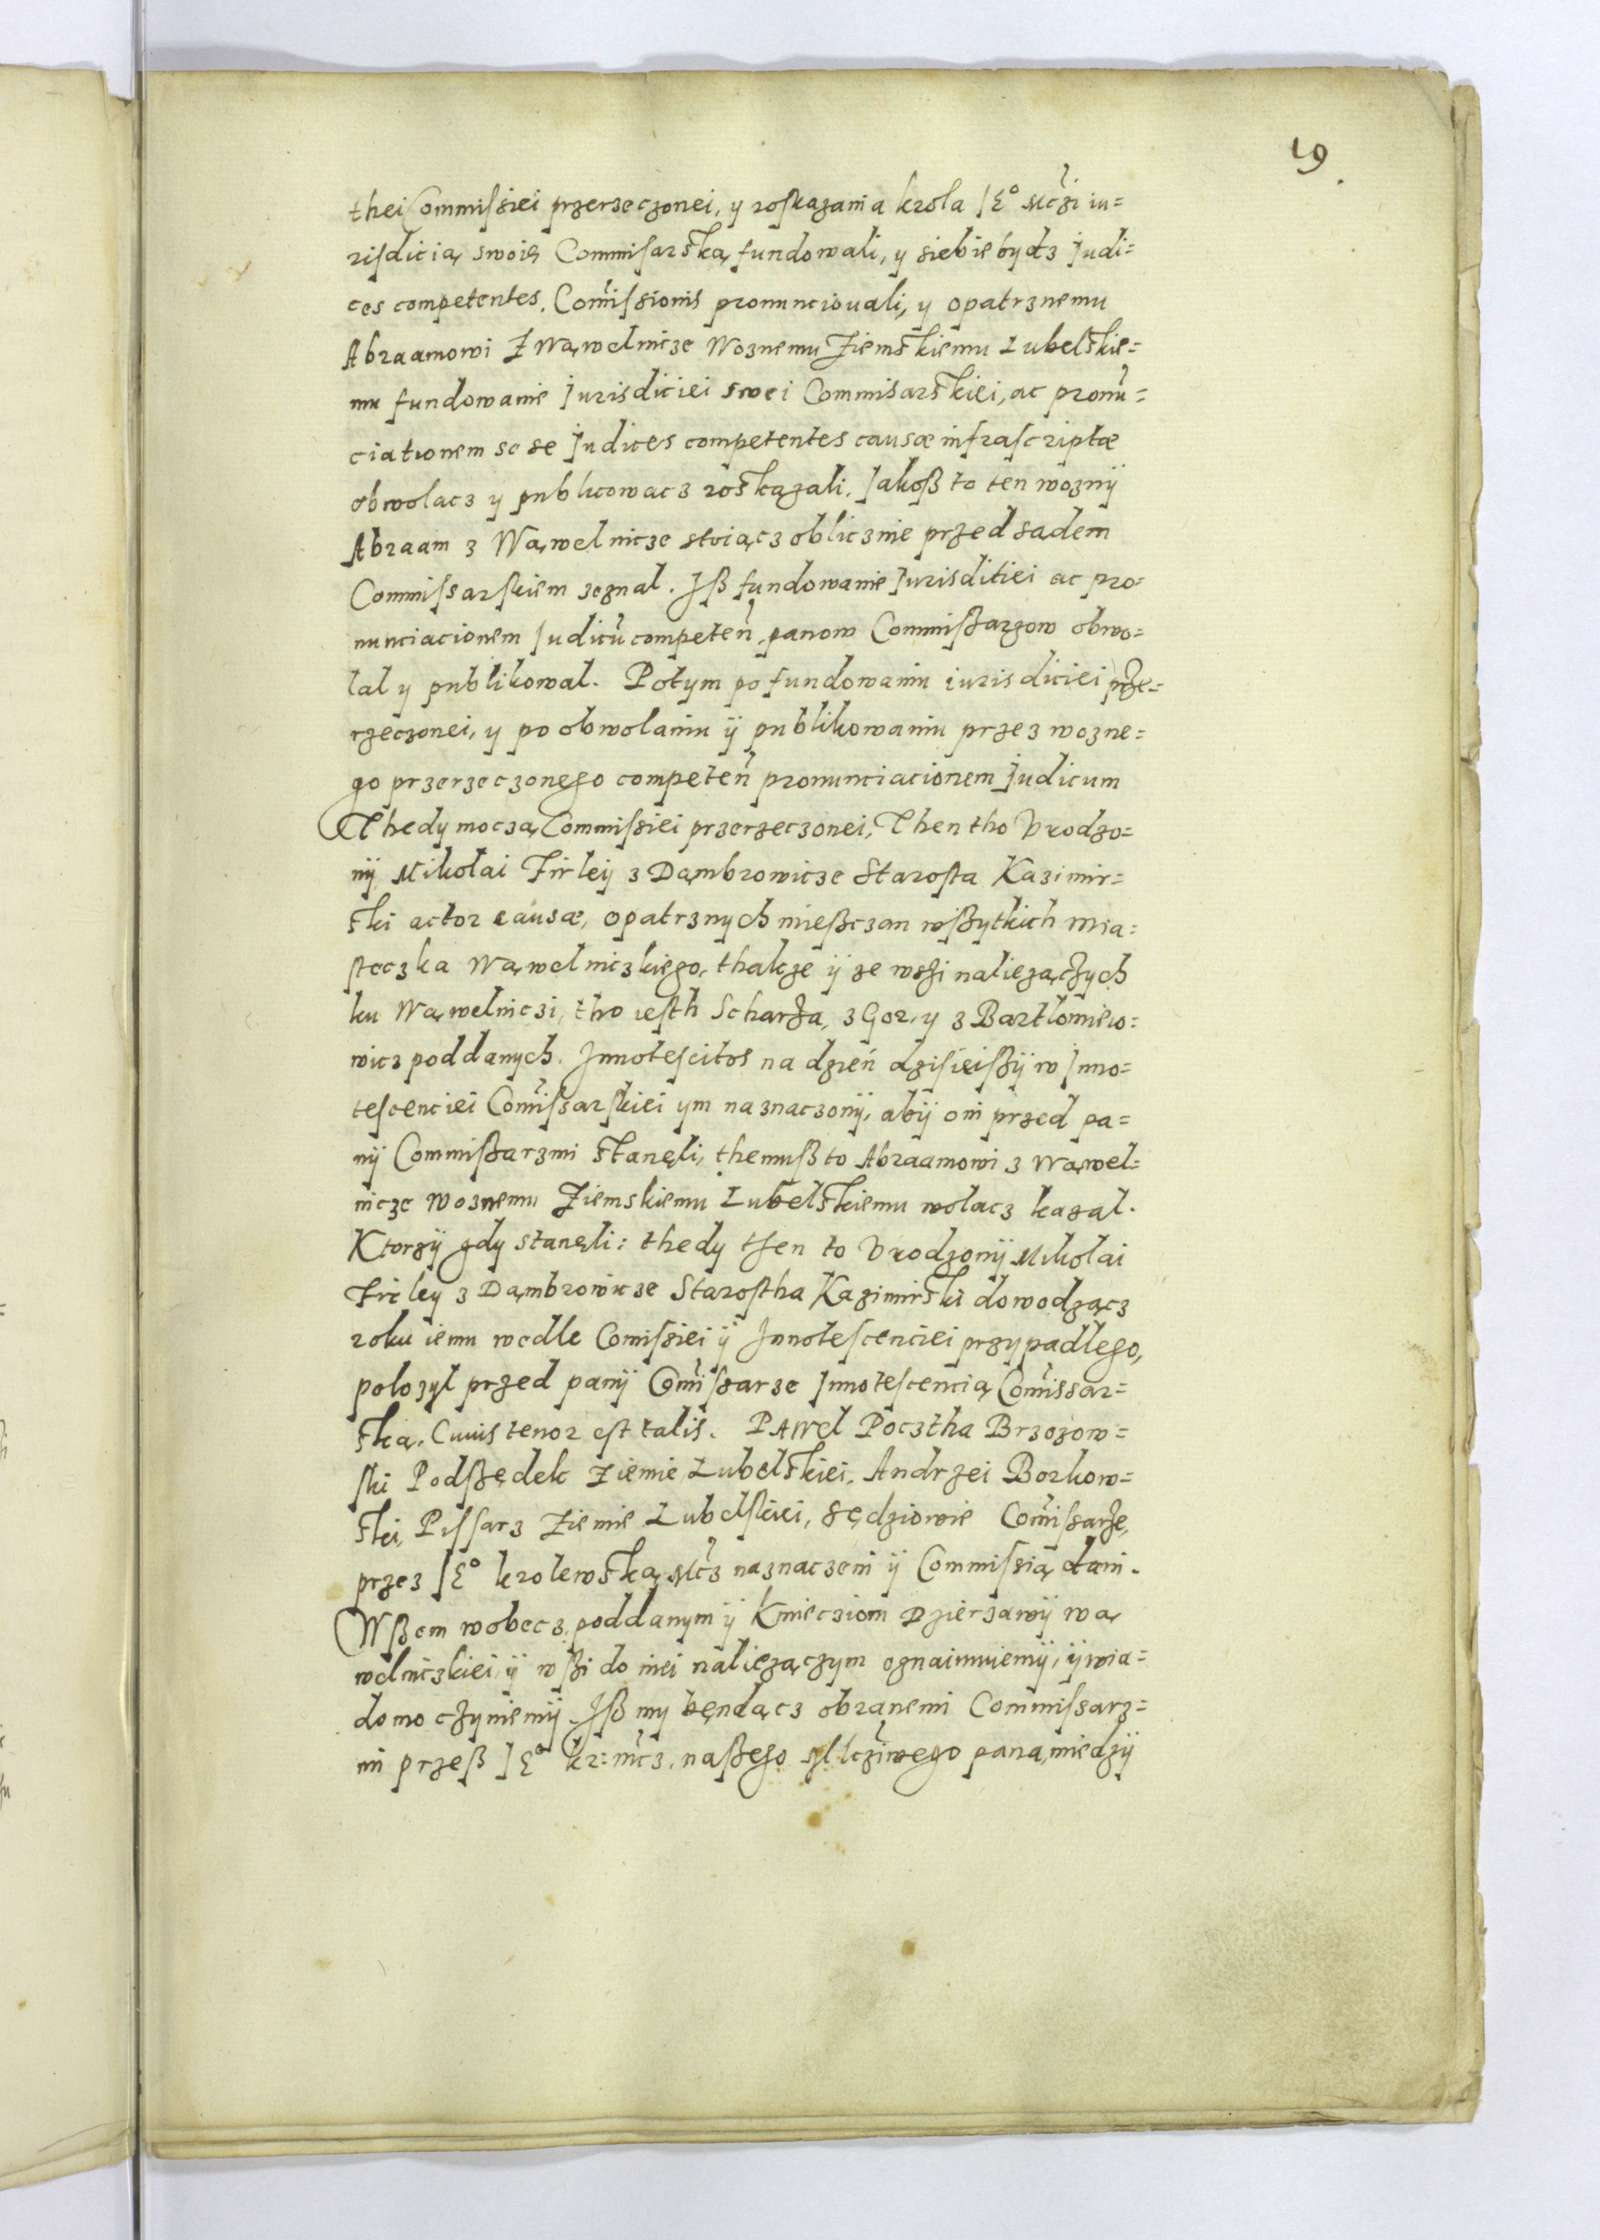 19.
thei Commißiei przerzeczonei, y roskazania krola JE° Mczi iu=
risdicią swoię Commisarską fundowali, y siebie bydz Judi=
ces competentes. Com̃issionis pronunciouali, y opatrznemu
Abraamowi Z Wąwelnicze Woznemu Ziemskiemu Lubelskie=
mu fundowanie Jurisdiciei swei Commisarskiei, ac pronũ=
ciationem se se Judices competentes causæ infrascriptæ
obwolacz y publicowacz roskązali. Jakoß to ten woznÿ
Abraam z Wąwelnicze stoiącz oblicznie przed sadem
Commissarskiem zeznal. Jß fundowanie Jurisditiei ac pro=
nunciacionem Judicũ competeñ. panow Commißarzow obwo=
lal y publikowal. Potym po fundowaniu iurisdiciei prze=
rzeczonei, y po obwolaniu ÿ publikowaniu przez wozne=
go przerzeczonego competeñ pronunciacionem Judicum
Thedy moczą Commißiei przerzeczonei, Then tho Vrodzo=
nÿ Mikolai Firleÿ z Dąmbrowicze Starosta Kazimir=
ski actor causæ, opatrznych mießczan wßytkich mia=
steczka Wąwelniczkiego, thakze ÿ ze wszi należączych
ku Wąwelniczi, tho iesth Scharza, z Gor, y z Bartlomiio=
wicz poddanych. Innotescitos na dzień dzisieißÿ w Inno=
tescenciei Com̃issarskiei ym naznaczonÿ, abÿ oni przed pa=
nÿ Commißarzmi stanęli, themuß to Abraamowi z Wąwel=
nicze Woznemu Ziemskiemu Lubelskiemu wolacz kazal.
Ktorzÿ gdy stanęli: thedy then to Vrodzonÿ Mikolai
Firley z Dąmbrowicze Starostha Kazimirski dowodzącz
roku iemu wedle Comissiei ÿ Innotescenciei przypadlego,
polozyl przed panÿ Com̃issarze Innotescencią Com̃issar=
ską. Cuius tenor est talis. PAWel Pocztha Brzozow=
ski Podßędek Ziemie Lubelskiei. Andrzei Borkow=
ski, Pissarz Ziemie Lubelskiei, sędziowie Com̃issarze,
przez JE° krolewską Mcz naznaczeni ÿ Commissią dani.
Wßem wobecz poddanym ÿ Kmiecziom Dzierzawÿ wą
welniczkiei ÿ wßi do niei należączym oznaimuiemÿ, ÿ wia=
domo czyniemÿ. Jß my będącz obranemi Commissarz=
mi przeß JE° kr: mcz. naßego pana, miedzÿ